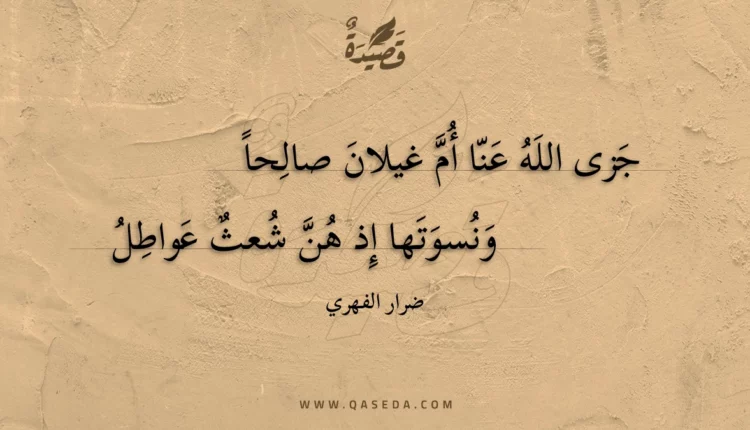 قَصِيدَةٌ
جَزى اللَهُ عَنّا أُمَّ غيلانَ صالِحاً
وَنُسوَتَها إِذ هُنَّ شُعثٌ عَواطِلُ
ضرار الفهري
WWW.QASEDA.COM